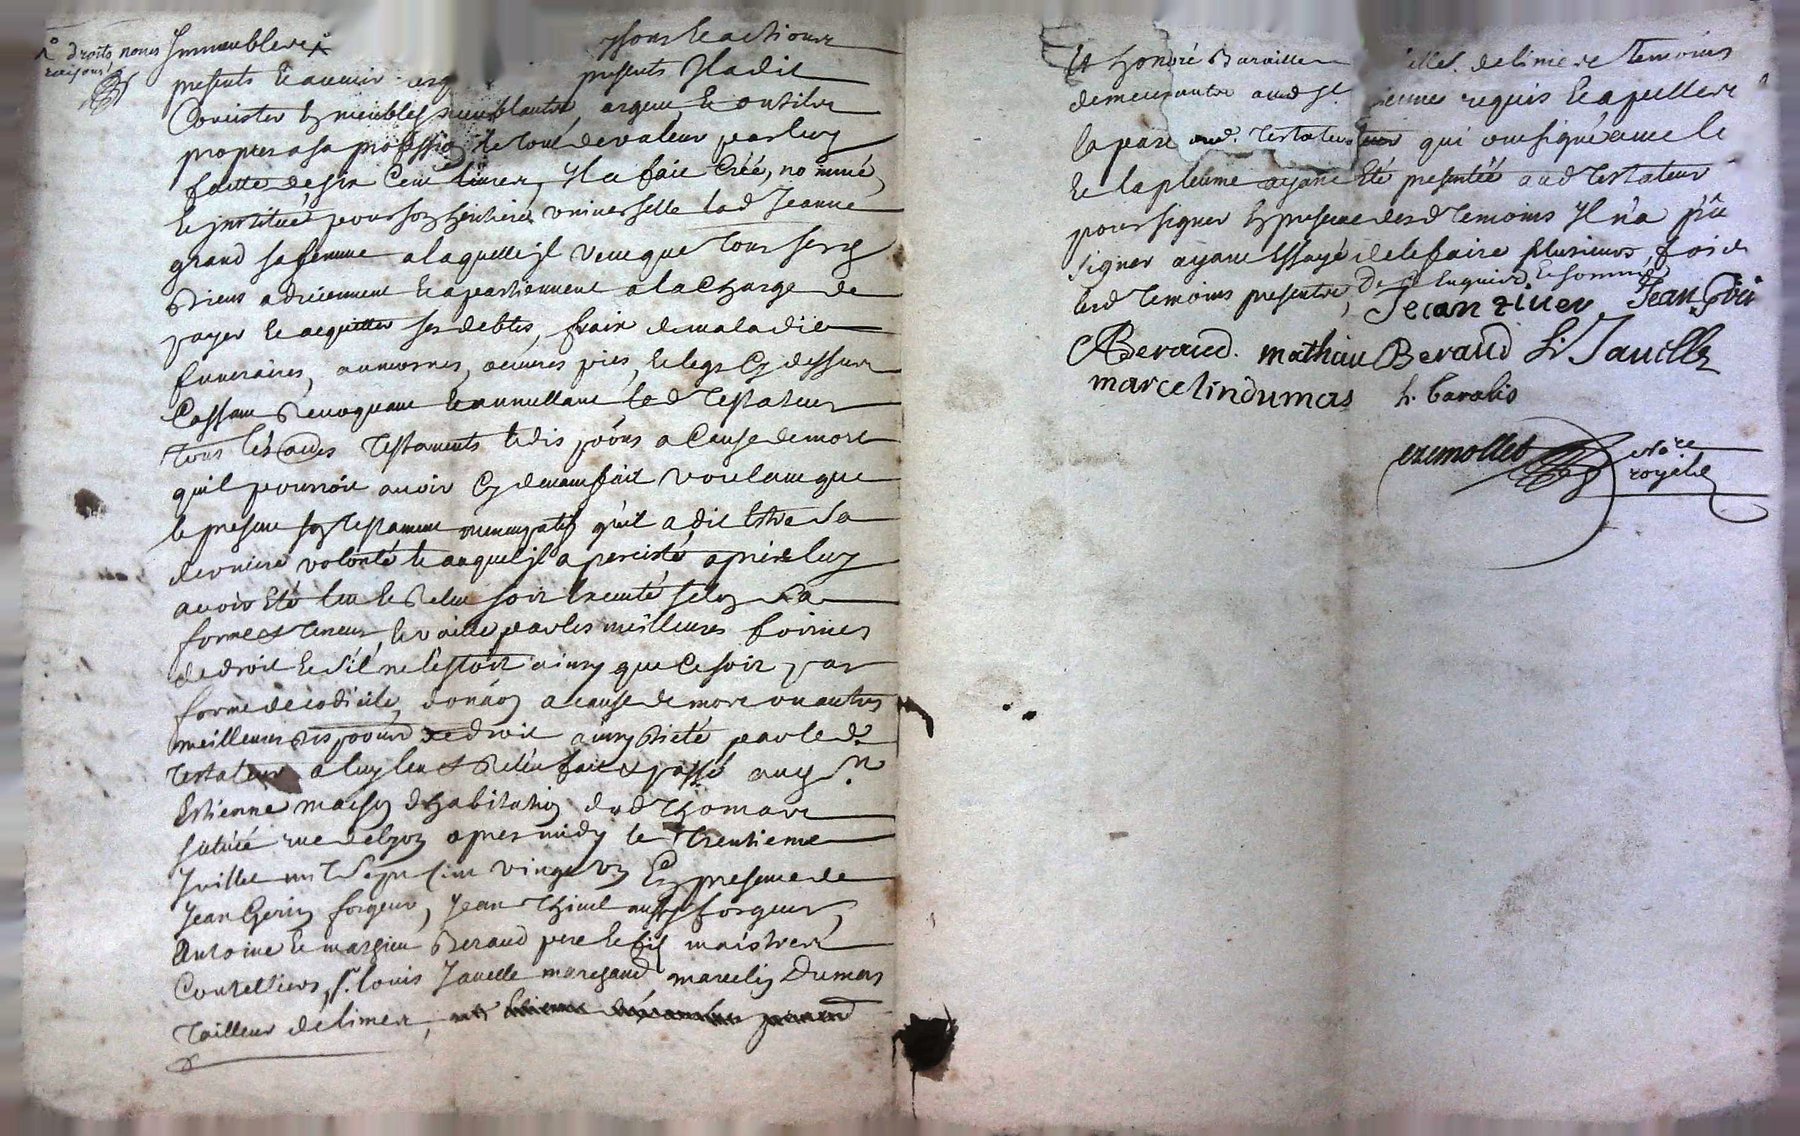 droits noms
raisons
Immeubles &
presents & avenir presents Il a dit
Concister En meubles meublants, argent & outilx
propres a sa profession le tout de valeur par luy
faitte de six Cent livres, Il a fait Créé, nommé,
& institué pour son heritiere universelle lad Jeanne
grand sa femme a laquelle il veut que tous sesd
Biens adviennent & apartiennent a la Charge de
payer & acquitter ses debtes, fraix de maladie
funeraires, aumosnes, oeuvres pies, & legs Cy dessus
Cassant Revoquant & annullant led Testateur
Tous les au[tr]es Testaments & dis[posit]ions a Cause de mort
quil pourroit avoir Cy devant fait voulant que
le present son Testament nuncupatif qu'il a dit Estre Sa
derniere volonté & auquel il a percisté, apres luy
avoir Eté leu & Releu soit Executé selon Sa
forme & Teneur, & vaille par les meilleures formes
de droit & s'il ne l'estoit ainsy que Ce soit par
forme de codicile, donaon a cause de mort ou autres
meilleures dis[posit]ions de droit ainsy Dicté par led.
Testateur a luy leu & Releu fait & passé aud St.
Estienne maison d'habitation dud Thomas
située rue de Lyon apres midy le Trentieme
Juillet mil Sept Cent vingt un En presence de
Jean Gerin forgeur, Jean Thivet aussy forgeur,
Antoine & mathieu Beraud pere & fils maistres
Coutelliers, Sr. Louis Javelle marchand marcelin Dumas
Tailleur de limes,
Et honoré Baralli de limes Temoins
demeurants aud St. tienne requis & apelles
la part dud. Testateur qui ont signé avec le
& la plume ayant Eté presentée aud Testateur
pour signer En presence desd Temoins Il n'a pû
signer ayant Essayé de le faire plusieurs fois
lesd Temoins presents, De ce Enquis & sommé
Jean tivet Jean Gerin
A Beraud. mathieu Beraud L. Javelle
marcelin dumas h. baralis
ezemollet no[tai]re
royal